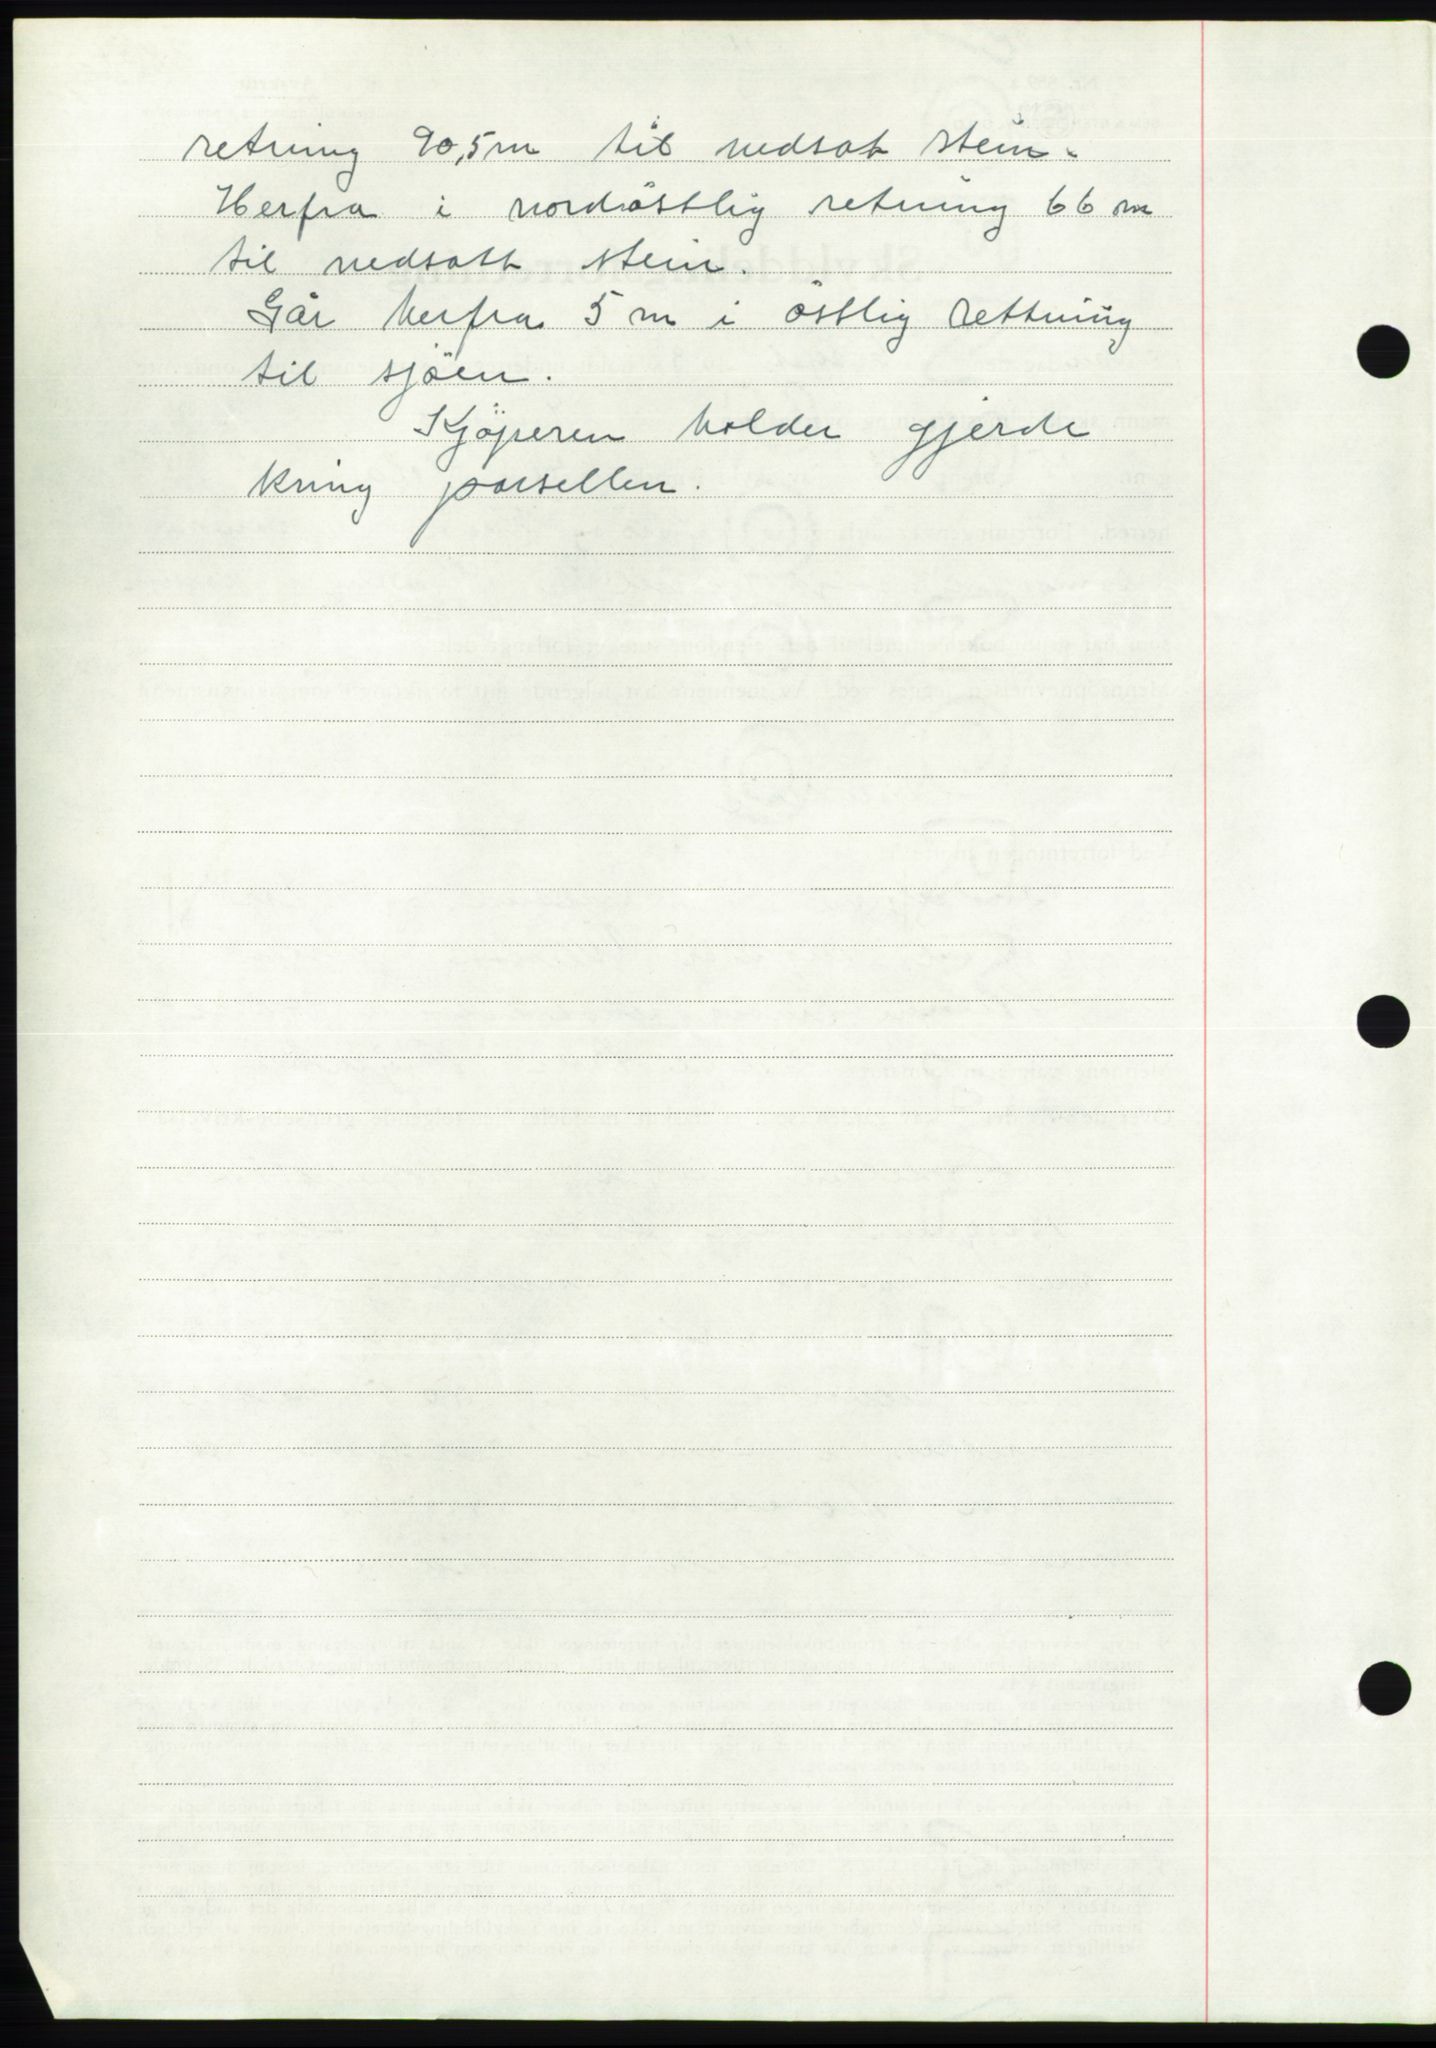 retning 90,5m til nedsat stein.
Herfra i nordöstlig retning 66 m
til nedsatt stein.
Går herfra 5 m i östlig rettning
til sjöen.
Kjöperen holder gjerde
kring parsellen.